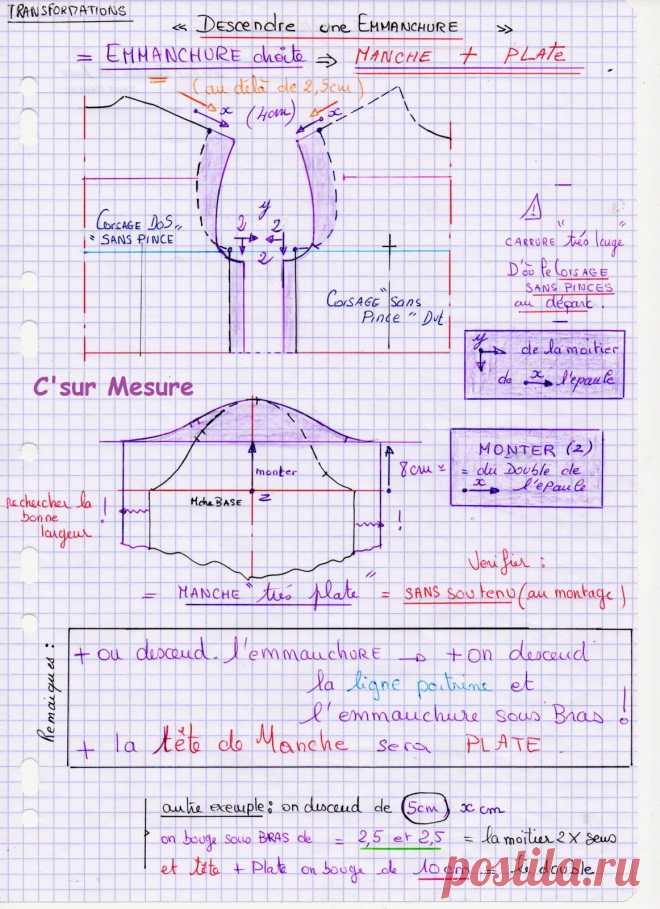 TRANSFORMATIONS
« Descendre une EMMANCHURE »
= EMMANCHURE droite ⇒ MANCHE + PLATE
(au délà de 2,5cm)
x (4cm) x
y
2 2
2
CORSAGE DOS
" SANS PINCE
CORSAGE "Sans
Pince" Dvt
CARRURE "très large"
D'où le CORSAGE
SANS PINCES
au départ.
y
de la moitier
de x l'epaule
C'sur Mesure
monter
Mche BASE
z
8cm =
MONTER (z)
= du Double de
x l'epaule
rechercher la
bonne
largeur
!
!
Verifier :
= MANCHE "très plate" = SANS soutenu (au montage)
Remarques :
+ ou descend l'emmanchure → + on descend
la ligne poitrine et
l'emmanchure sous Bras !
+ la tête de Manche sera PLATE.
autre exemple : on descend de 5cm x cm
on bouge sous BRAS de = 2,5 et 2,5 = la moitier 2 X sens
et tête + Plate on bouge de 10 cm = le double
postila.ru